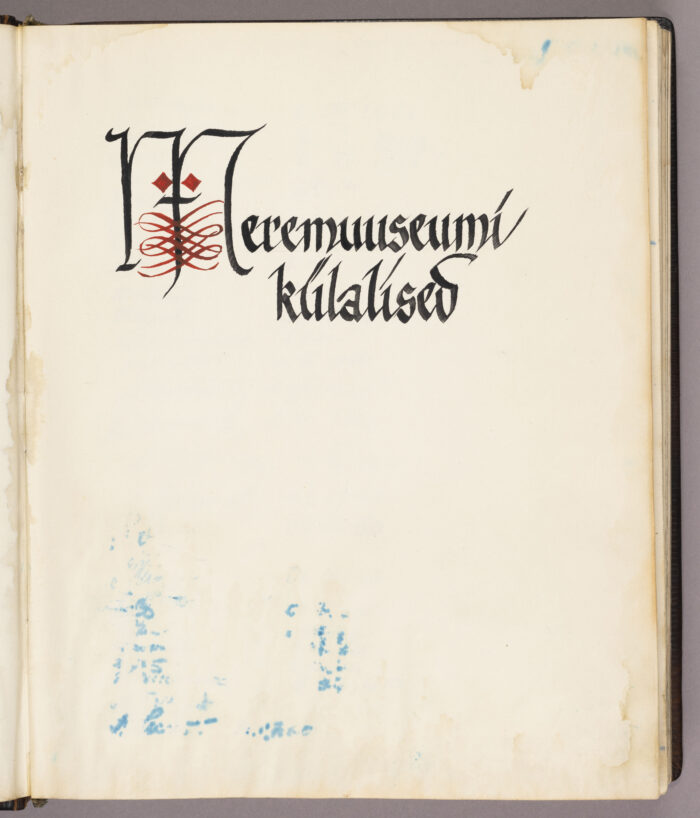 Meremuuseumi
külalised